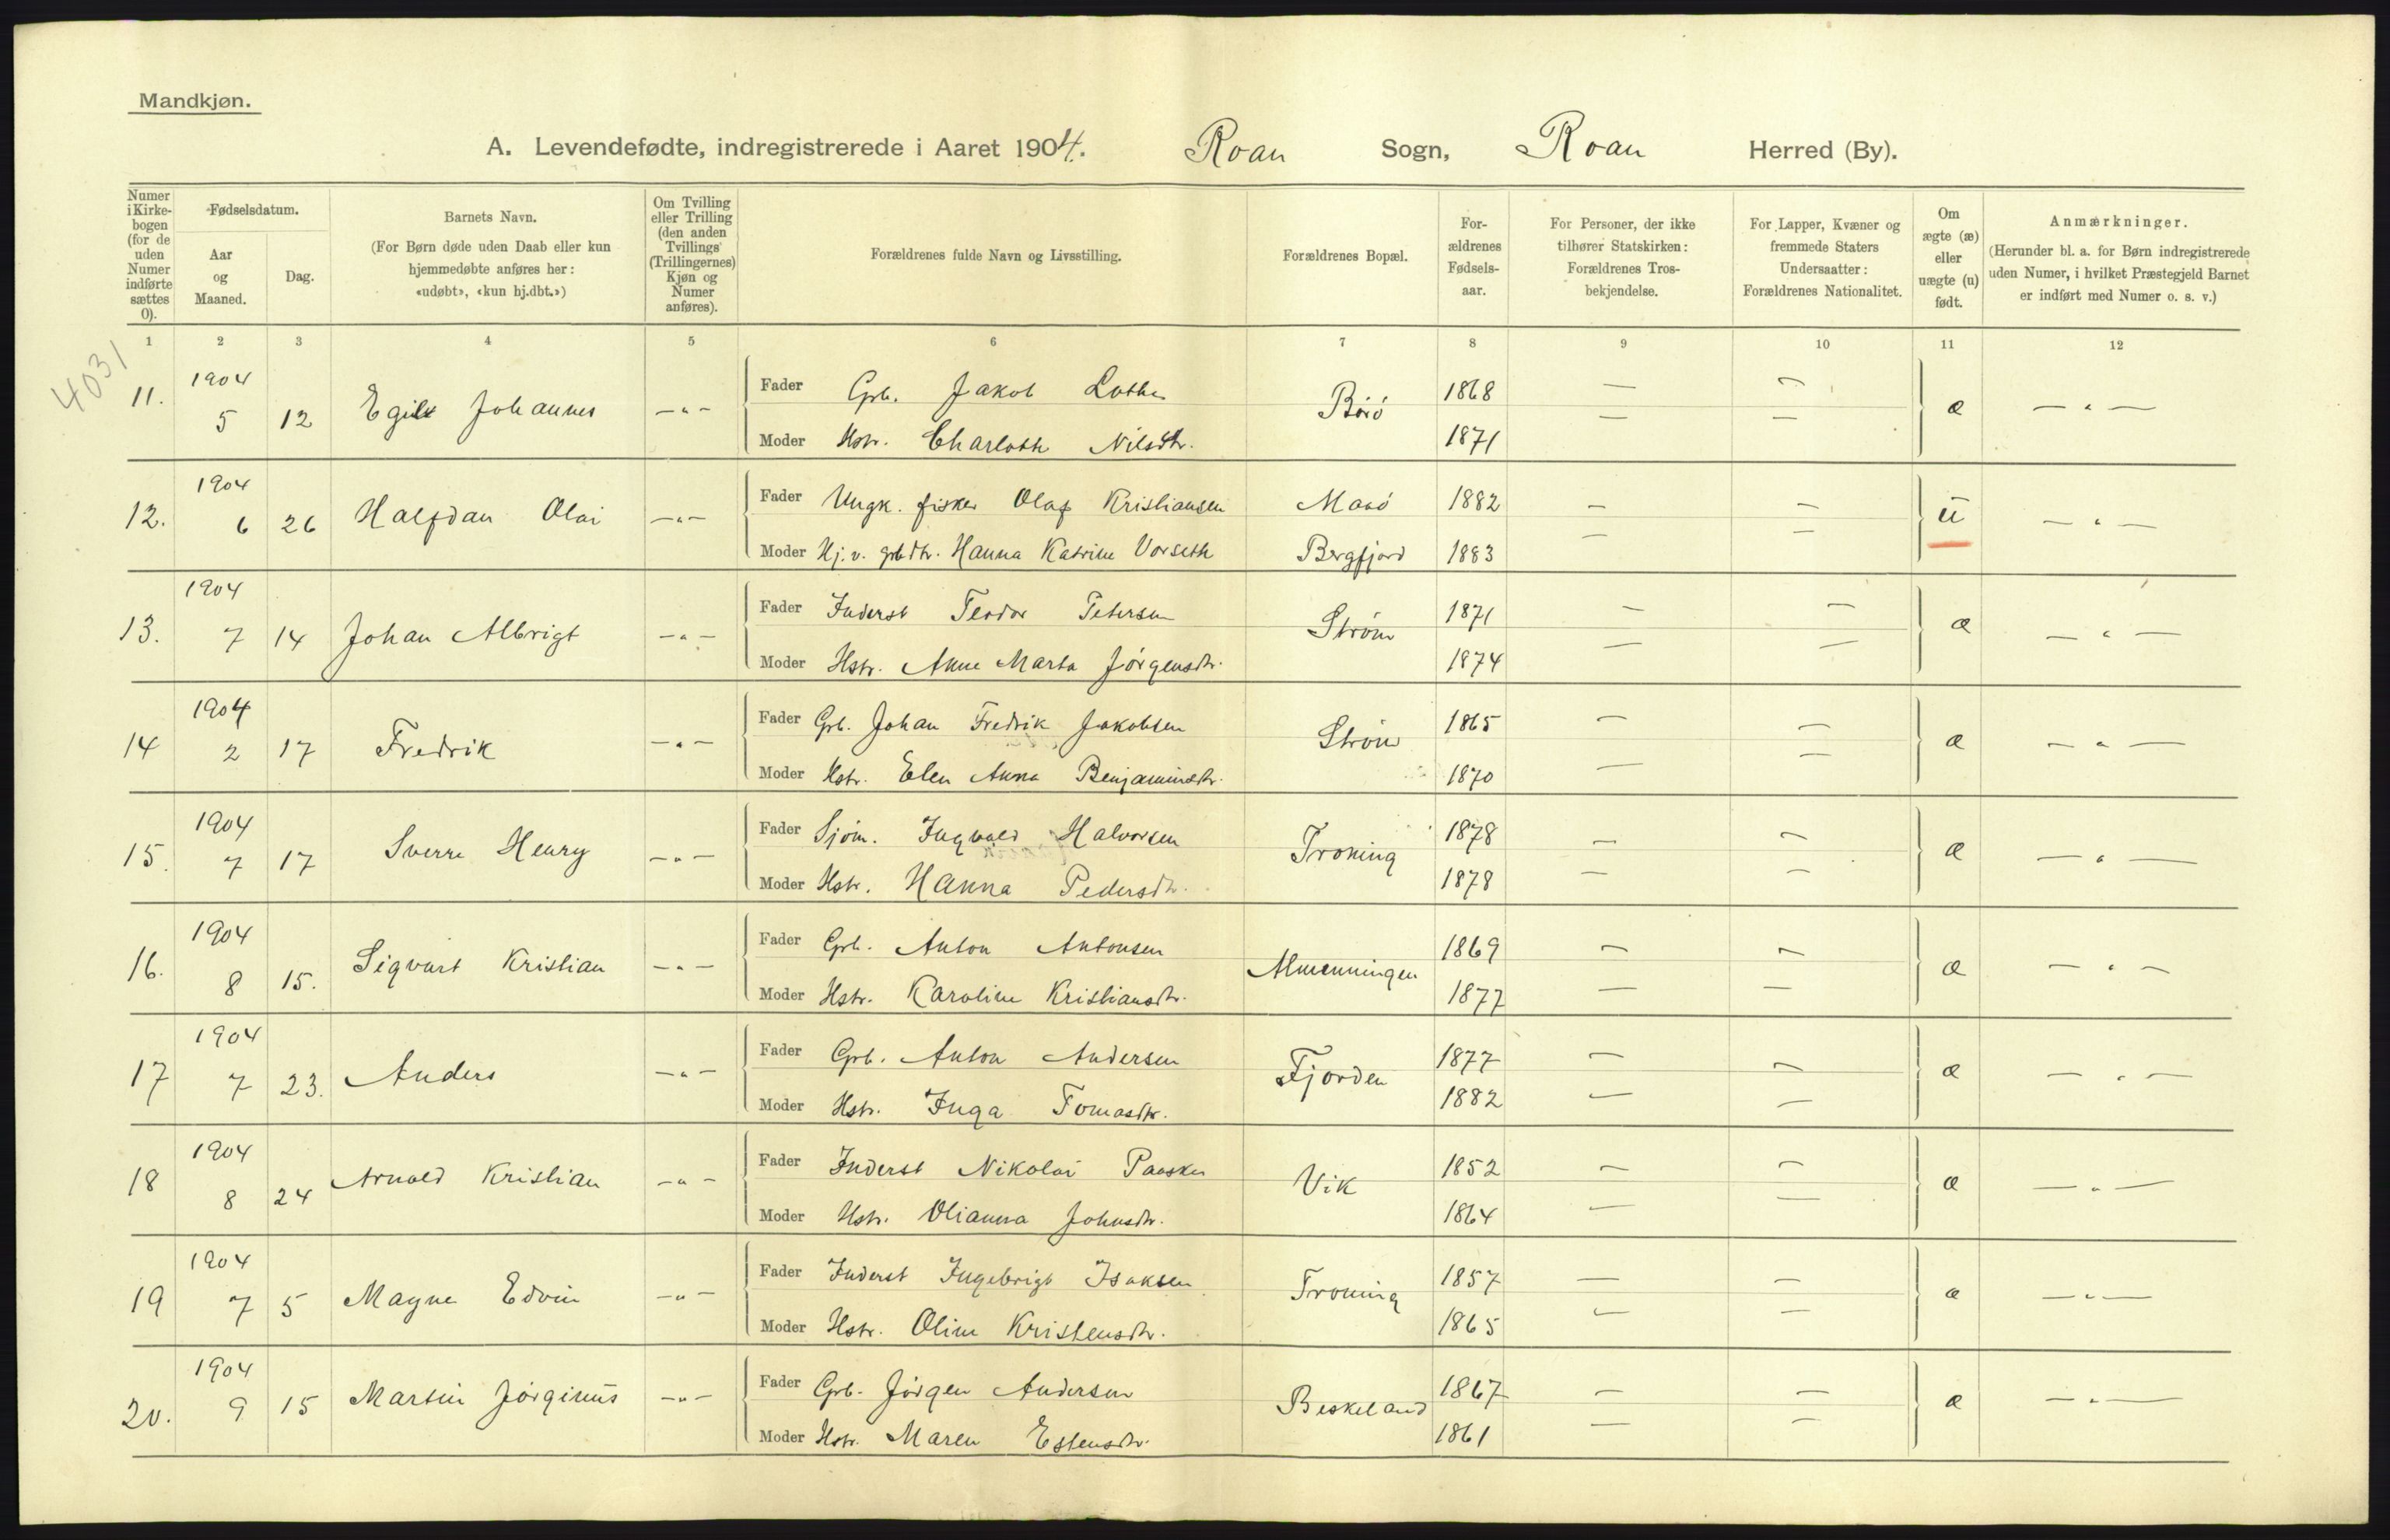 Mandkjøn.
A. Levendefødte, indregistrerede i Aaret 1904. Roan Sogn, Roan Herred (By).
Numer i Kirke-bogen (for de uden Numer indførte sættes 0).
Fødselsdatum.
Aar og Maaned.
Dag.
Barnets Navn.
(For Børn døde uden Daab eller kun hjemmedøbte anføres her: «udøbt», «kun hj.dbt.»)
Om Tvilling eller Trilling (den anden Tvillings (Trillingernes) Kjøn og Numer anføres).
Forældrenes fulde Navn og Livsstilling.
Forældrenes Bopæl.
For-ældrenes Fødsels-aar.
For Personer, der ikke tilhører Statskirken: Forældrenes Tros-bekjendelse.
For Lapper, Kvæner og fremmede Staters Undersaatter: Forældrenes Nationalitet.
Om ægte (æ) eller uægte (u) født.
Anmærkninger.
(Herunder bl. a. for Børn indregistrerede uden Numer, i hvilket Præstegjeld Barnet er indført med Numer o. s. v.)
1 2 3 4 5 6 7 8 9 10 11 12
4031
11. 1904 5 12 Egil Johannes —"— Fader Grb. Jakob 1868 — — æ —"—
Moder Hstr. Charlotte Nilsdtr. 1871 — —
12. 1904 6 26 Halfdan Olai —"— Fader Ungk. fisker Olaf Kristiansen 1882 — — u —"—
Moder Hj. v. grbdtr. Hanna Katrine Vorseth Bergfjord 1883 — —
13. 1904 7 14 Johan Albrigt —"— Fader Inderst Teodor Petersen Strøm 1871 — — æ —"—
Moder Hstr. Anne Marta Jørgensdtr. 1874 — —
14 1904 2 17 Fredrik —"— Fader Grb. Johan Fredrik Jakobsen Strøm 1865 — — æ —"—
Moder Hstr. Elen Anna Benjaminsdtr. 1870 — —
15. 1904 7 17 Sverre Henry —"— Fader Sjøm. Ingvald Halvorsen Troning 1878 — — æ —"—
Moder Hstr. Hanna Pedersdtr. 1878 — —
16. 1904 8 15. Sigvart Kristian —"— Fader Grb. Anton Antonsen Almenningen 1869 — — æ —"—
Moder Hstr. Karoline Kristiansdtr. 1877 — —
17 1904 7 23. Anders —"— Fader Grb. Anton Andersen Fjorden 1877 — — æ —"—
Moder Hstr. Inga Tomasdtr. 1882 — —
18 1904 8 24 Arnold Kristian —"— Fader Inderst Nikolai Paaske Vik 1852 — — æ —"—
Moder Hstr. Olianna Johnsdtr. 1864 — —
19 1904 7 5 Magne Edvin —"— Fader Inderst Ingebrigt Isaksen Troning 1857 — — æ —"—
Moder Hstr. Oline Kristensdtr. 1865 — —
20. 1904 9 15 Martin Jørginus —"— Fader Grb. Jørgen Andersen Beskeland 1867 — — æ —"—
Moder Hstr. Maren Estensdtr. 1861 — —